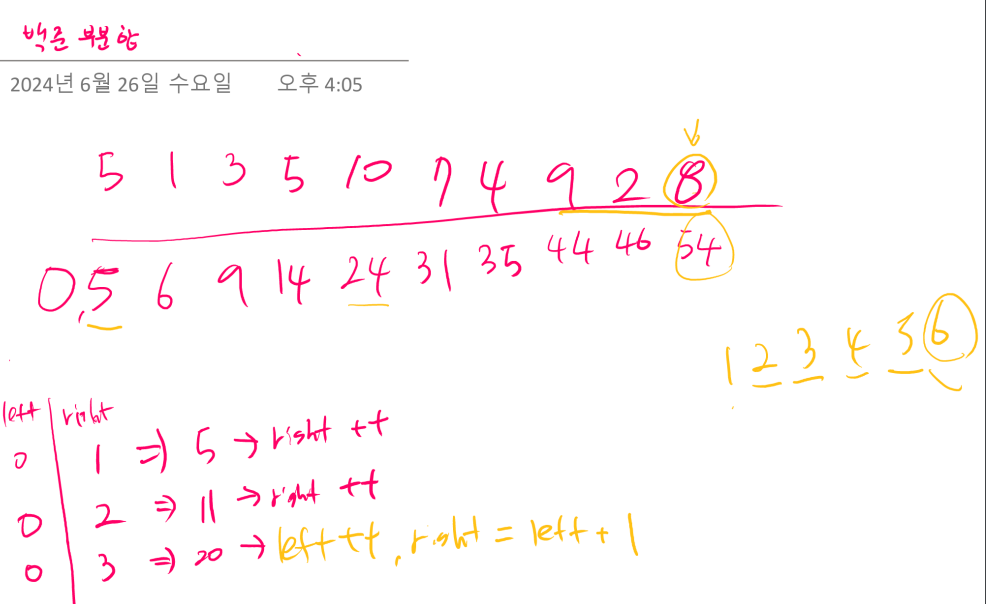 백준 부분합
2024년 6월 26일 수요일 오후 4:05
5 1 3 5 10 7 4 9 2 8
0,5 6 9 14 24 31 35 44 46 54
1 2 3 4 5 6
left right
0 1 => 5 → right ++
0 2 => 11 → right ++
0 3 => 20 → left++, right = left + 1